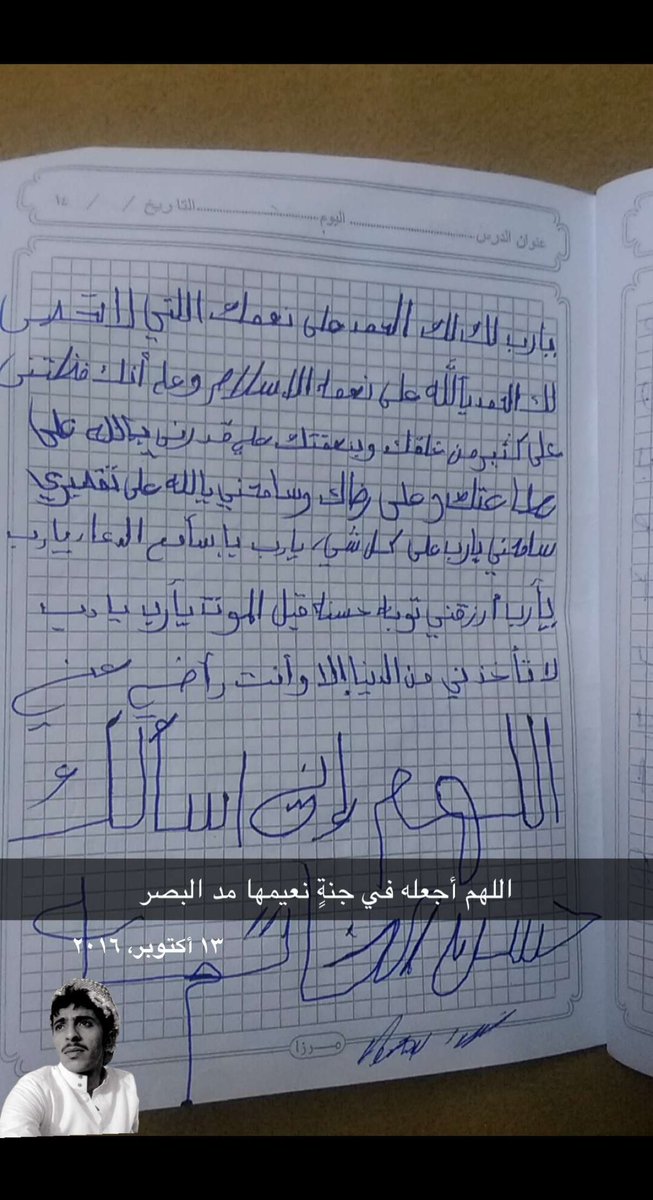 عنوان الدرس اليوم التاريخ / / ١٤
يارب لك لك الحمد على نعمك اللتي لاتحصى
لك الحمد ياالله على نعمه الاسلام وعلى أنك فضلتني
على كثير من خلقك وبنعمتك علي قدرني ياالله على
طاعتك وعلى رضاك وسامحني ياالله على تقصيري
سامحني يارب على كل شيء، يارب يا سامع الدعاء يارب
ياربا أرزقني توبه حسنه قبل الموت يأرب يارب
لا تأخذني من الدنيا إلا وأنت رأضي عني
اللهم إني اسألك
حسن الخاتمة
اللهم أجعله في جنةٍ نعيمها مد البصر
١٣ أكتوبر، ٢٠١٦
مـرزا